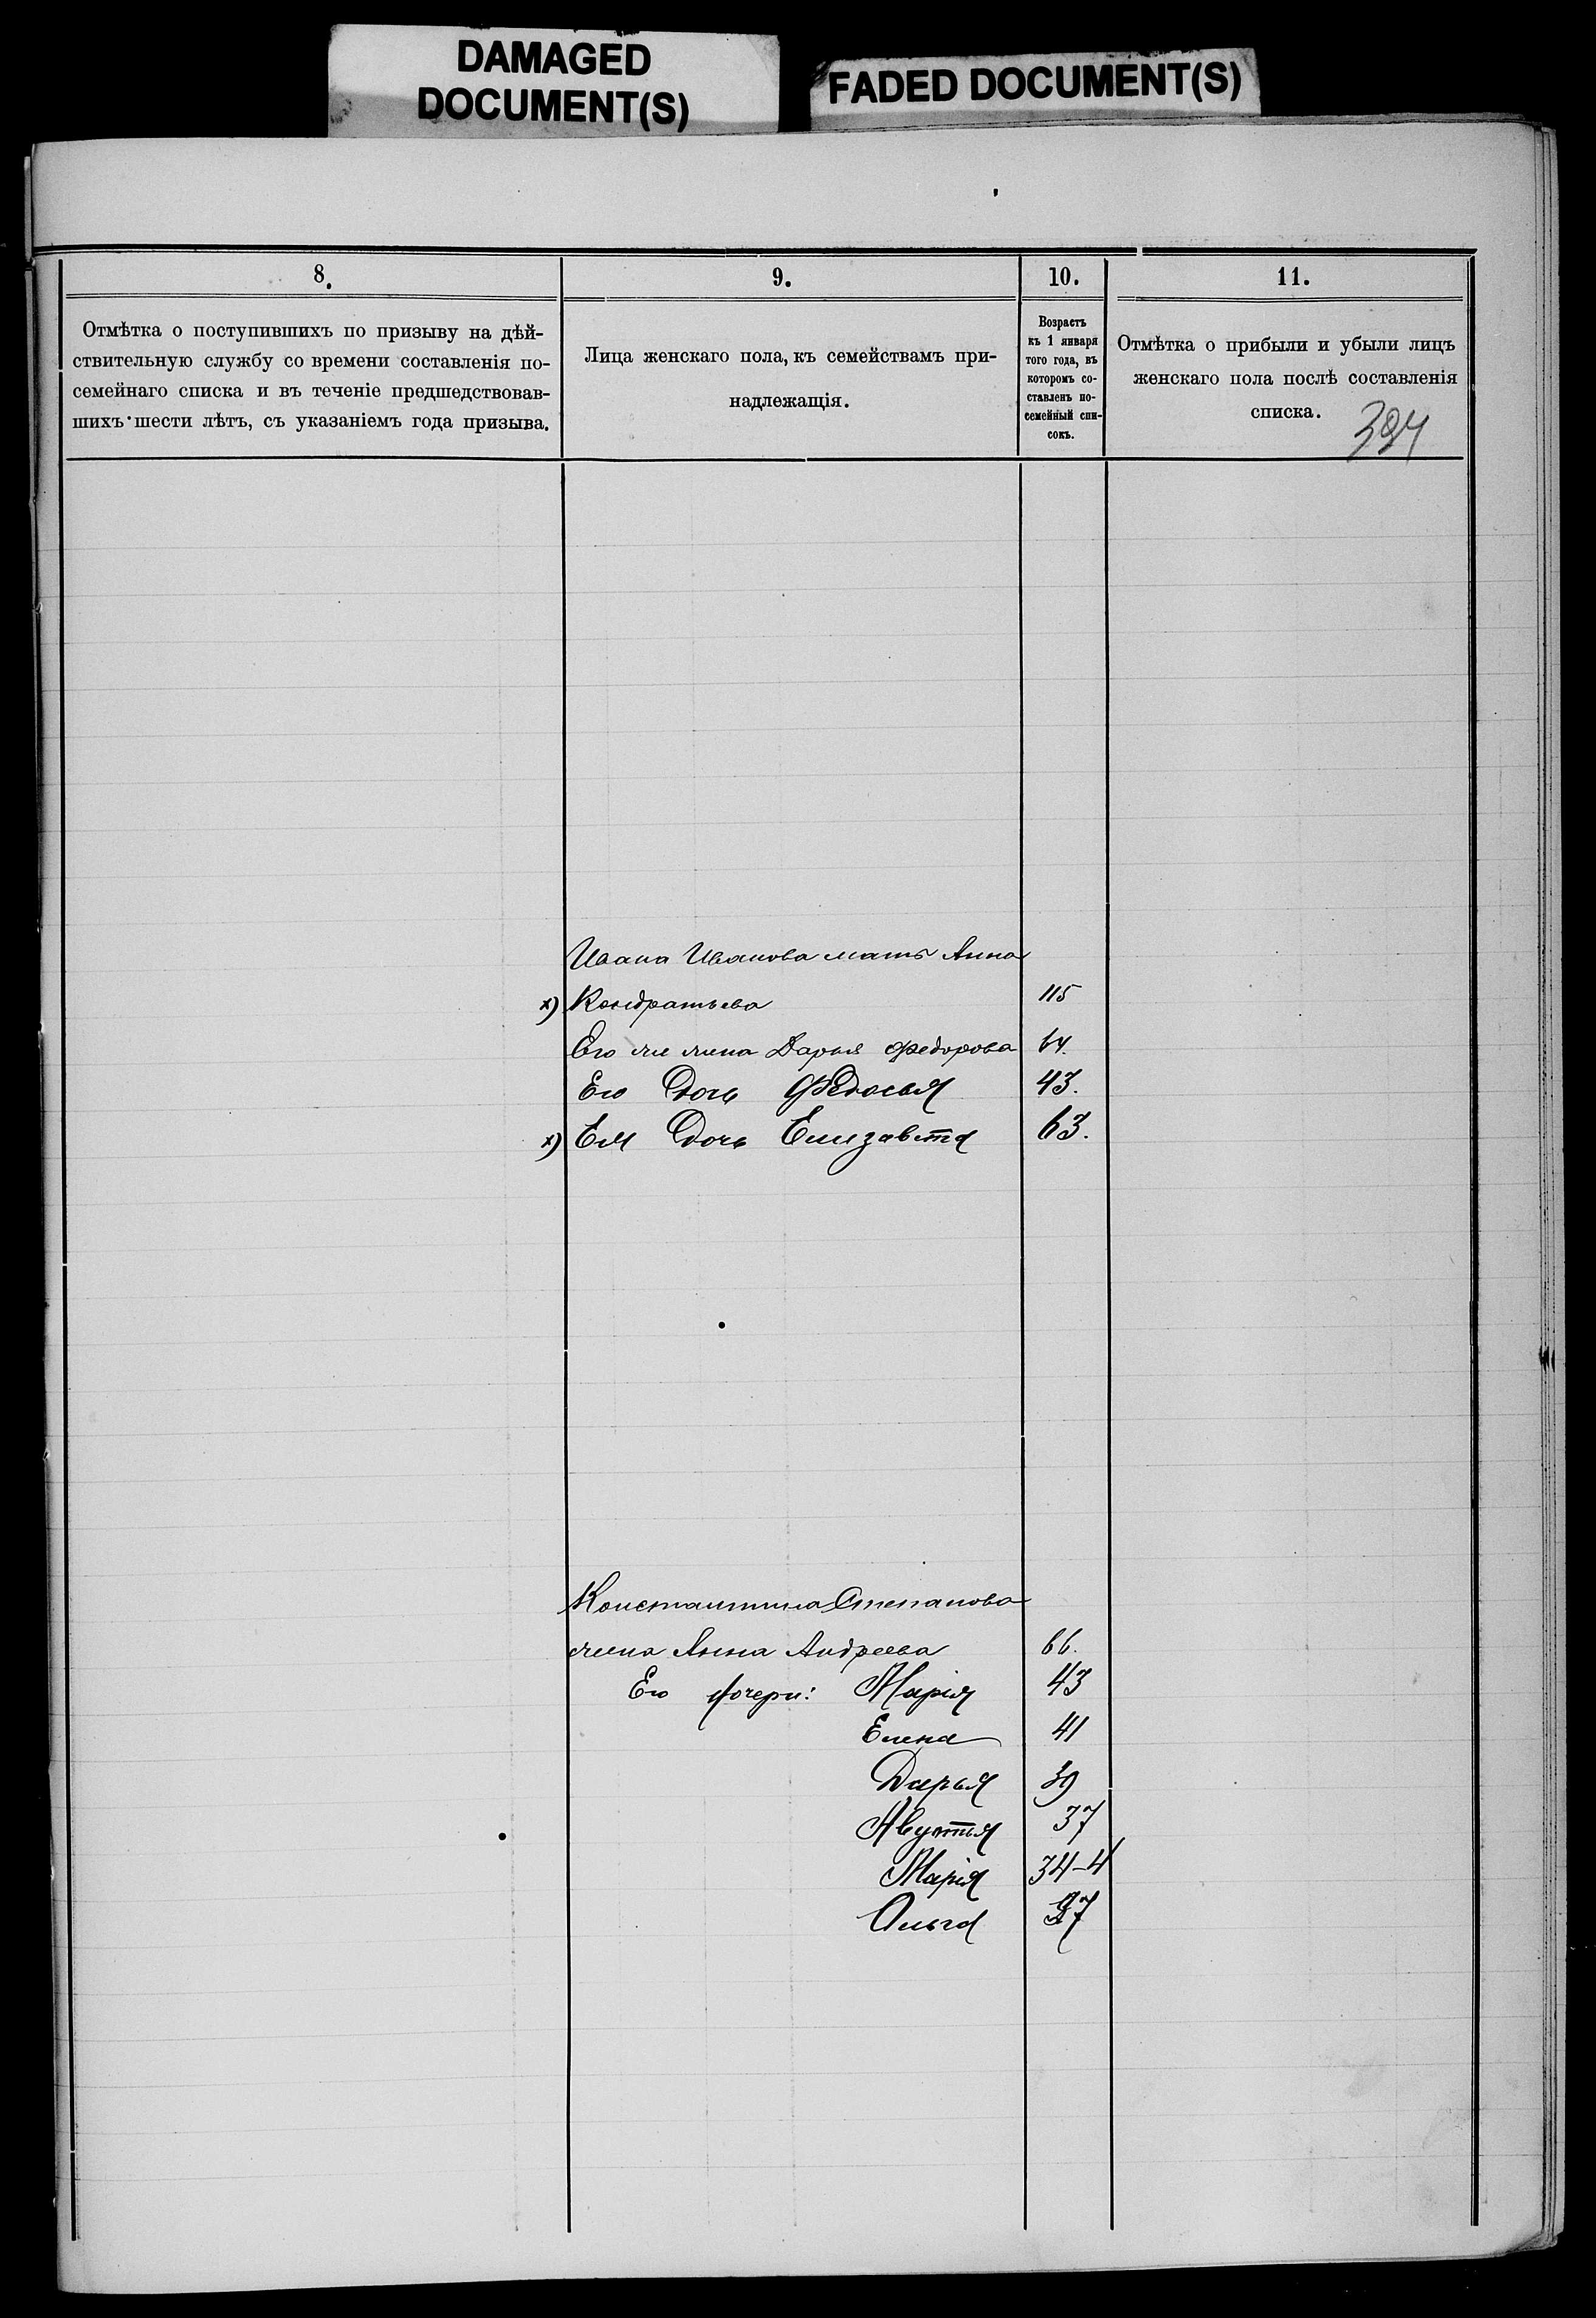 DAMAGED
DOCUMENT(S)
FADED DOCUMENT(S)
8.
Отмѣтка о поступившихъ по призыву на дѣй-
ствительную службу со времени составленія по-
семейнаго списка и въ теченіе предшедствовав-
шихъ шести лѣтъ, съ указаніемъ года призыва.
9.
Лица женскаго пола, къ семействамъ при-
надлежащія.
10.
Возрастъ
къ 1 января
того года, въ
которомъ со-
ставленъ по-
семейный спи-
сокъ.
11.
Отмѣтка о прибыли и убыли лицъ
женскаго пола послѣ составленія
списка.
394
Ивана Иванова мать Анна
х) Кондратьева 115
Его же жена Дарья Федорова 64.
Его Дочь Федосья 43.
х) Ея Дочь Елизавета 63.
Константина Степанова
жена Анна Андреева 66.
Его дочери: Марія 43
Елена 41
Дарья 39
37
Марія 34-4
Ольга 27